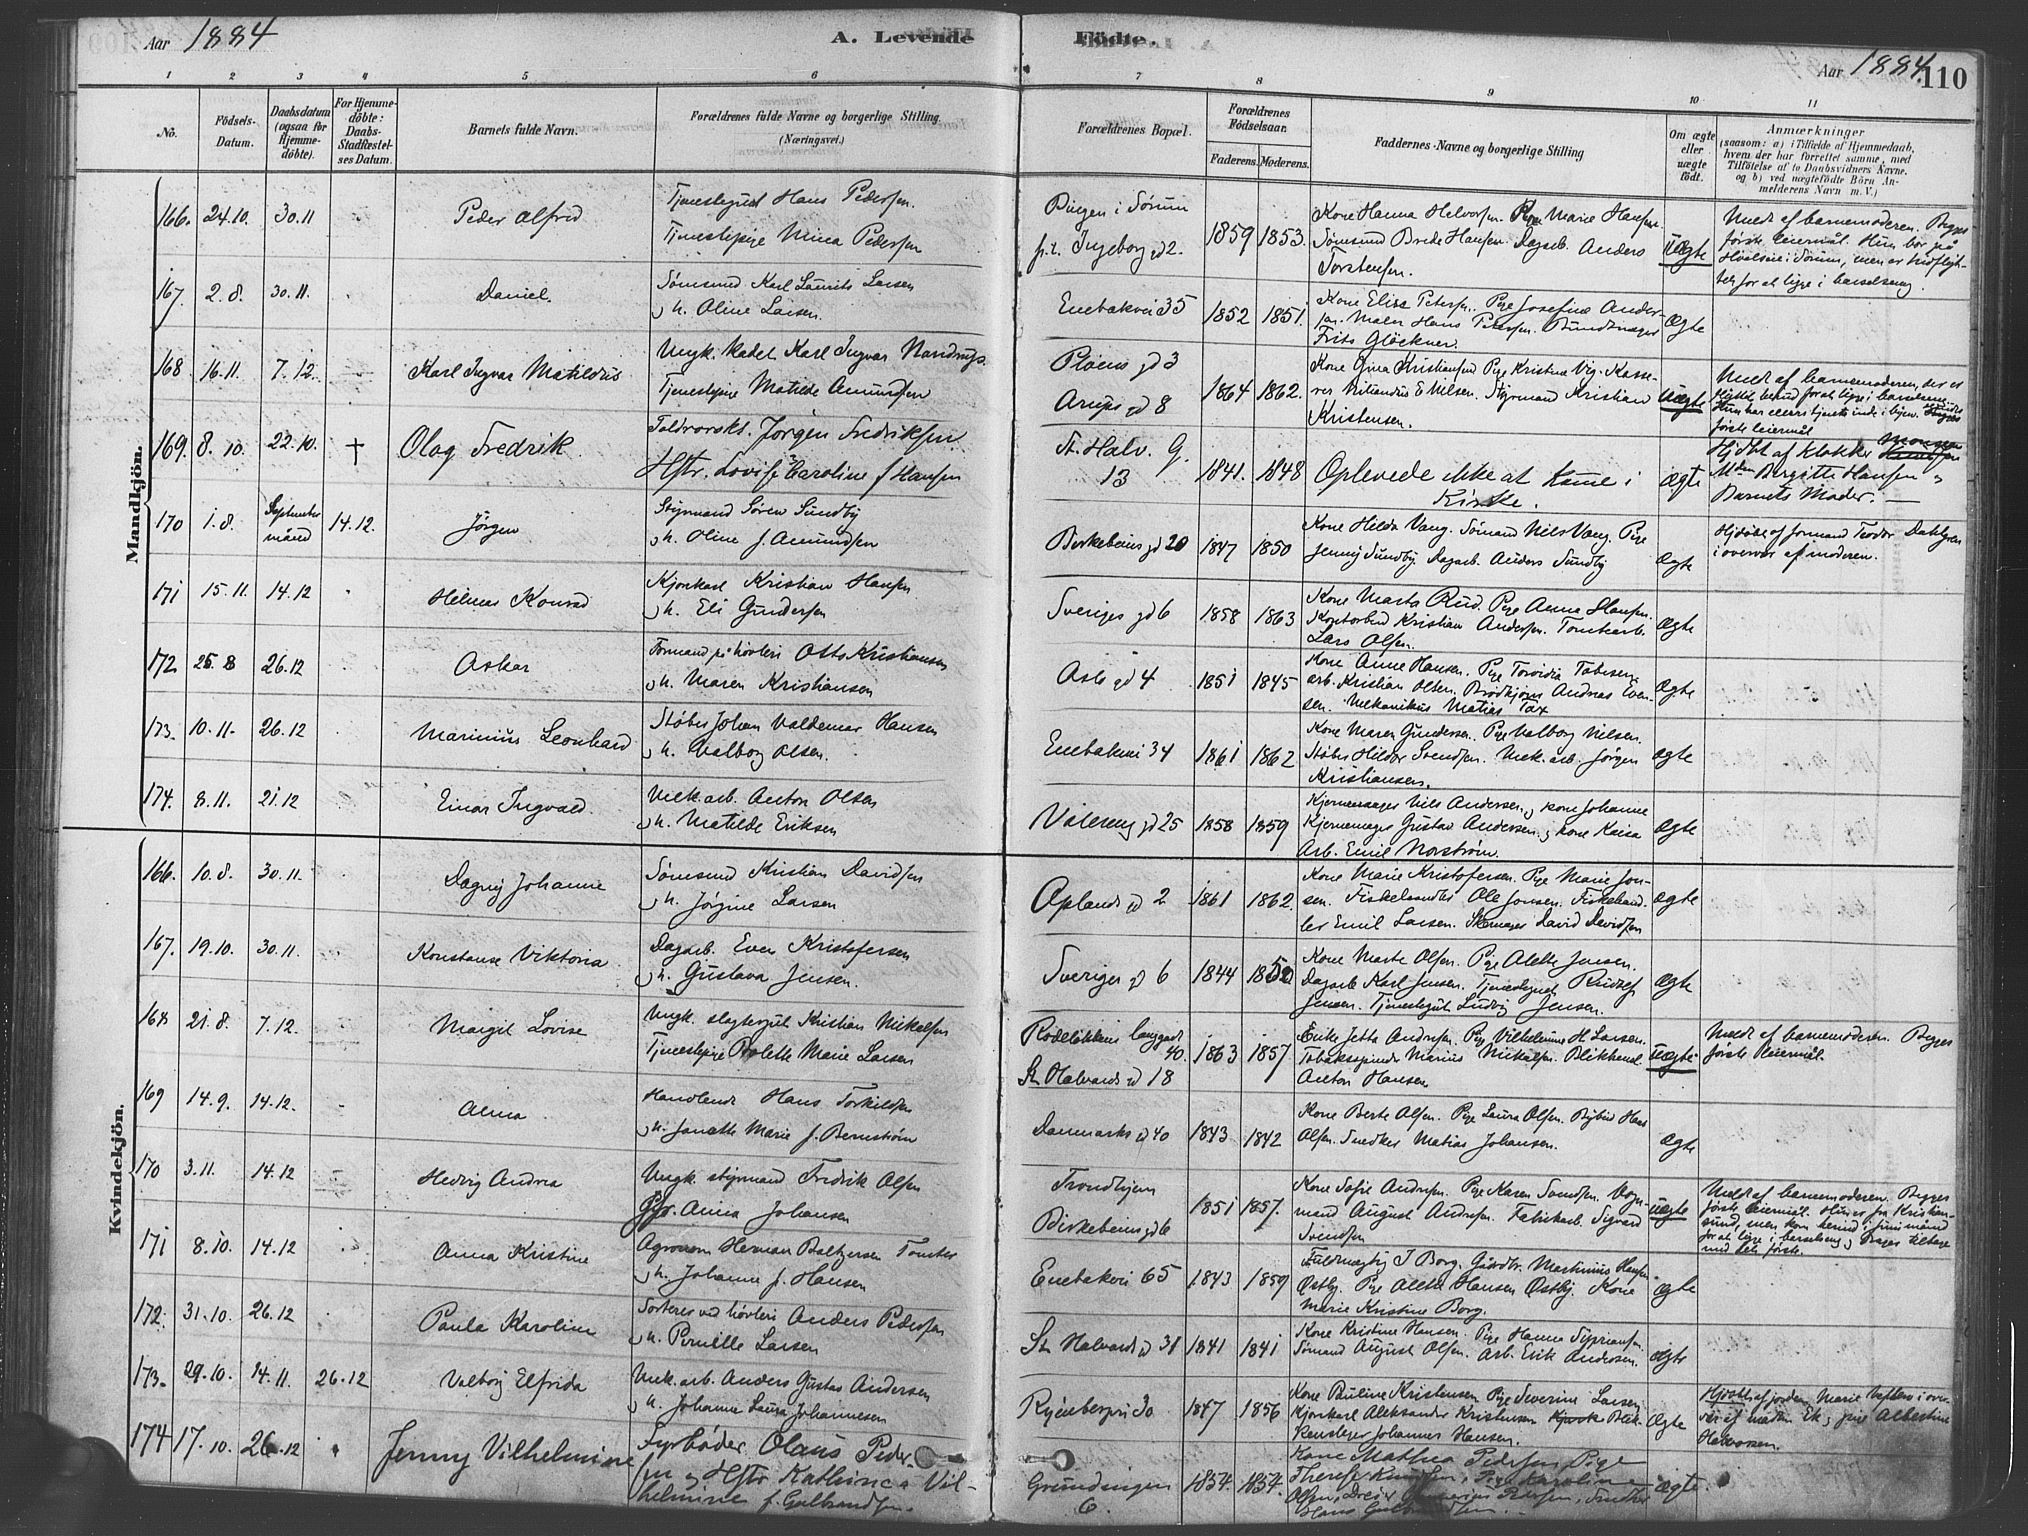 Aar 1884
A. Levende
Födte.
Aar 1884.
110
1 2 3 4 5 6 7 8 9 10 11
No.
Födsels-Datum.
Daabsdatum (ogsaa for Hjemmedöbte).
For Hjemmedöbte: Daabs-Stadfæstelses Datum.
Barnets fulde Navn.
Forældrenes fulde Navne og borgerlige Stilling.
(Næringsvei.)
Forældrenes Bopæl.
Forældrenes Födselsaar.
Faderens. Moderens.
Faddernes Navne og borgerlige Stilling
Om ægte eller uægte födt.
Anmærkninger
(saasom: a) i Tilfælde af Hjemmedaab,
hvem der har forrettet samme, med
Tilföielse af to Daabsvidners Navne.
og b) ved uægtefödte Börn An-
melderens Navn m. V.)
Mandkjön.
166. 24.10. 30.11 Peder Alfred
Tjenestegut Hans Pedersen.
Tjenestepige Mina Pedersen
Bingen i Sörum
p.t. Ingeborg gd 2.
1859 1853.
Kone Hanna Helvorsen. Pige Marie Hansen.
Sømand Brede Hansen. Dagarb. Anders
Torstensen.
Uægte
Meldt af barnemoderen. Begges
første leiermål. Hun bor på
i Sørum, men er
for at ligge i barselseng.
167. 2.8. 30.11. Daniel.
Sømand Karl Laurits Larsen
h. Oline Larsen.
Enebakvei 35 1852 1851.
Kone Elise Petersen. Pige Josefine Ander-
sen. Maler Hans Petersen. Bundtmager
Frits Glöckner.
Ægte
168 16.11. 7.12. Karl Ingvar Matildus
Ungk. Kadet Karl Ingvar Nandrup.
Tjenestepige Matilde Amundsen
Pløens gd 3
Arups gd 8
1864 1862.
Kone Gina Kristiansen Pige Kristine Vig. Kasse-
rer E Nilsen. Styrmand Kristian
Kristensen.
Uægte
Meldt af barnemoderen, der er
for at ligge i barselseng.
Hun har ellers tjent inde i byen.
første leiermål
169. 8.10. 22.10. † Olag Fredrik
Toldroorskt. Jørgen Fredriksen.
Hstr. Lovise Caroline f Hansen
St. Halv. G.
13
1841. 1848
Oplevede ikke at komme i
Kirke.
ægte
Hjdbt af Klokker
Mdm Bergitte Hansen &
Barnets Moder.
170 1.8. September måned 14.12. Jørgen
Styrmand Søren Sundby
h. Oline f. Amundsen
Birkebeins gd 20 1847 1850
Kone Hilda Vang. Sømand Nils Vang. Pige
Jenny Sundby. Dagarb. Anders Sundby
Ægte
Hjdöbt af Jormand Teodor Dahlgren
i overvær af moderen.
171 15.11. 14.12 Helmer Konrad
Kjørekarl Kristian Hansen
h. Eli Gundersen
Sveriges gd 6 1858 1863
Kone Marta Rud. Pige Anna Hansen.
Kontorbud Kristian Andersen. Tomtearb.
Lars Olsen.
Ægte
172 25.8 26.12 Askar
Formand på høvleri Otto Kristiansen
h. Maren Kristiansen
Oslo gd 4 1851 1845
Kone Anne Hansen. Pige Torvida Tobiesen
arb. Kristian Olsen. Brødkjører Andreas Even-
sen. Mekanikus Matias Tax
Ægte
173. 10.11. 26.12 Marinius Leonhard
Støber Johan Valdemar Hansen
h. Valborg Olsen.
Enebakvei 34 1861 1862
Kone Maren Gundersen. Pige Valborg Nilsen.
Støber Hildor Svendsen. Mek. arb. Jørgen
Kristiansen.
Ægte
174. 8.11. 21.12 Einar Ingvald
Mek. arb. Anton Olsen
h. Matilde Eriksen
Vålereng gd 25 1858 1859
Nils Andersen, kone Johanne
Gustav Andersen & kone Kaisa
Arb. Emil Norstrøm.
Ægte
Kvindekjön.
166. 10.8. 30.11. Dagny Johanne
Sømand Kristian Davidsen
h. Jørgine Larsen
Oplands gd 2 1861 1862.
Kone Marie Kristofersen. Pige Marie Jon-
sen. Fiskehandler Ole Jonsen. Fiskehand-
ler Emil Larsen. Skomager David Davidsen
Ægte
167. 19.10. 30.11. Konstanse Viktoria
Dagarb. Even Kristofersen
h. Gustava Jensen.
Sveriges gd 6 1844 1850
Kone Marte Olsen. Pige Alette Jensen.
Dagarb Karl Jensen. Tjenestegut Rudolf
Jensen. Tjenestegut Ludvig Jensen.
Ægte
168 21.8. 7.12. Margit Lovise
Ungk. slagtergut Kristian Mikalsen
Tjenestepige Bolette Marie Larsen
Rodeløkkens langgade 40.
St Halvards gd 18
1863 1857.
Enke Jetta Andersen. Pige Vilhelmine H Larsen.
Tobakspinder Marius Mikalsen. Blikkensl.
Anton Hansen
Uægte
Meldt af barnemoderen. Begges
første leiermål.
169 14.9. 14.12. Alma
Handlende Hans Torkildsen
h. Janette Marie f. Bernstrøm
Danmarks gd 40 1843 1842
Kone Berte Olsen. Pige Laura Olsen. Bybud Hans
Olsen. Snedker Matias Johansen.
Ægte
170 3.11. 14.12 Hedvig Andrea
Ungk. styrmand Fredrik Olsen
Pge. Anna Johansen
Trondhjem
Birkebeins gd 6
1851 1857.
Kone Sofie Andersen. Pige Karen Svendsen. Vogn-
mand August Andersen. Fabrikarb. Sigvard
Svendsen
uægte
Meldt af barnemoderen. Begges
første leiermål. Hun er fra Kristian-
sund, men kom herind i juni måned
for at ligge i barselseng & drager tilbage
med det første.
171 8.10. 14.12 Anna Kristine
Agronom Herman Baltzersen Tonsker
h. Johanne f. Hansen
Enebakvei 65 1843 1859
Fuldmægtig J Borg. Gårdbr. Martinius Hansen
Østby. Pige Alette Hansen Østby. Kone
Marie Kristine Borg.
Ægte
172. 31.10. 26.12 Paula Karoline
Sorterer ved høvleri Anders Pedersen
h. Pernille Larsen
St Halvards gd 31 1841 1841
Kone Kristine Hansen. Pige Hanna Syprionsen.
Sømand August Olsen. Arb. Erik Andersen.
ægte
173. 29.10. 14.11. 26.12 Valborg Elfrida
Mek. arb. Anders Gustav Andersen
h. Johanne Laura Johannesen
Ryenbergvei 30 1847 1856
Kone Pauline Kristensen Pige Severine Larsen
Kjørekarl Aleksander Kristensen Blik-
kenslager Johannes Hansen.
Ægte
Hjdöbt af jordm. Marie i over-
vær af madam Ek & pige Albertine
Halvorsen.
174 17.10. 26.12 Jenny Vilhelmine
Fyrbøder Olaus Peder-
sen & Hstr Kathinca Vil-
helmine f. Gulbrandsen.
Grændsegen
6.
1854. 1854.
Kone Mathea Pedersen, Pige
Therese Knudsen, Pige Karoline
Olsen, Dreier Pedersen, Snedker
Hans Gulbrandsen.
ægte.